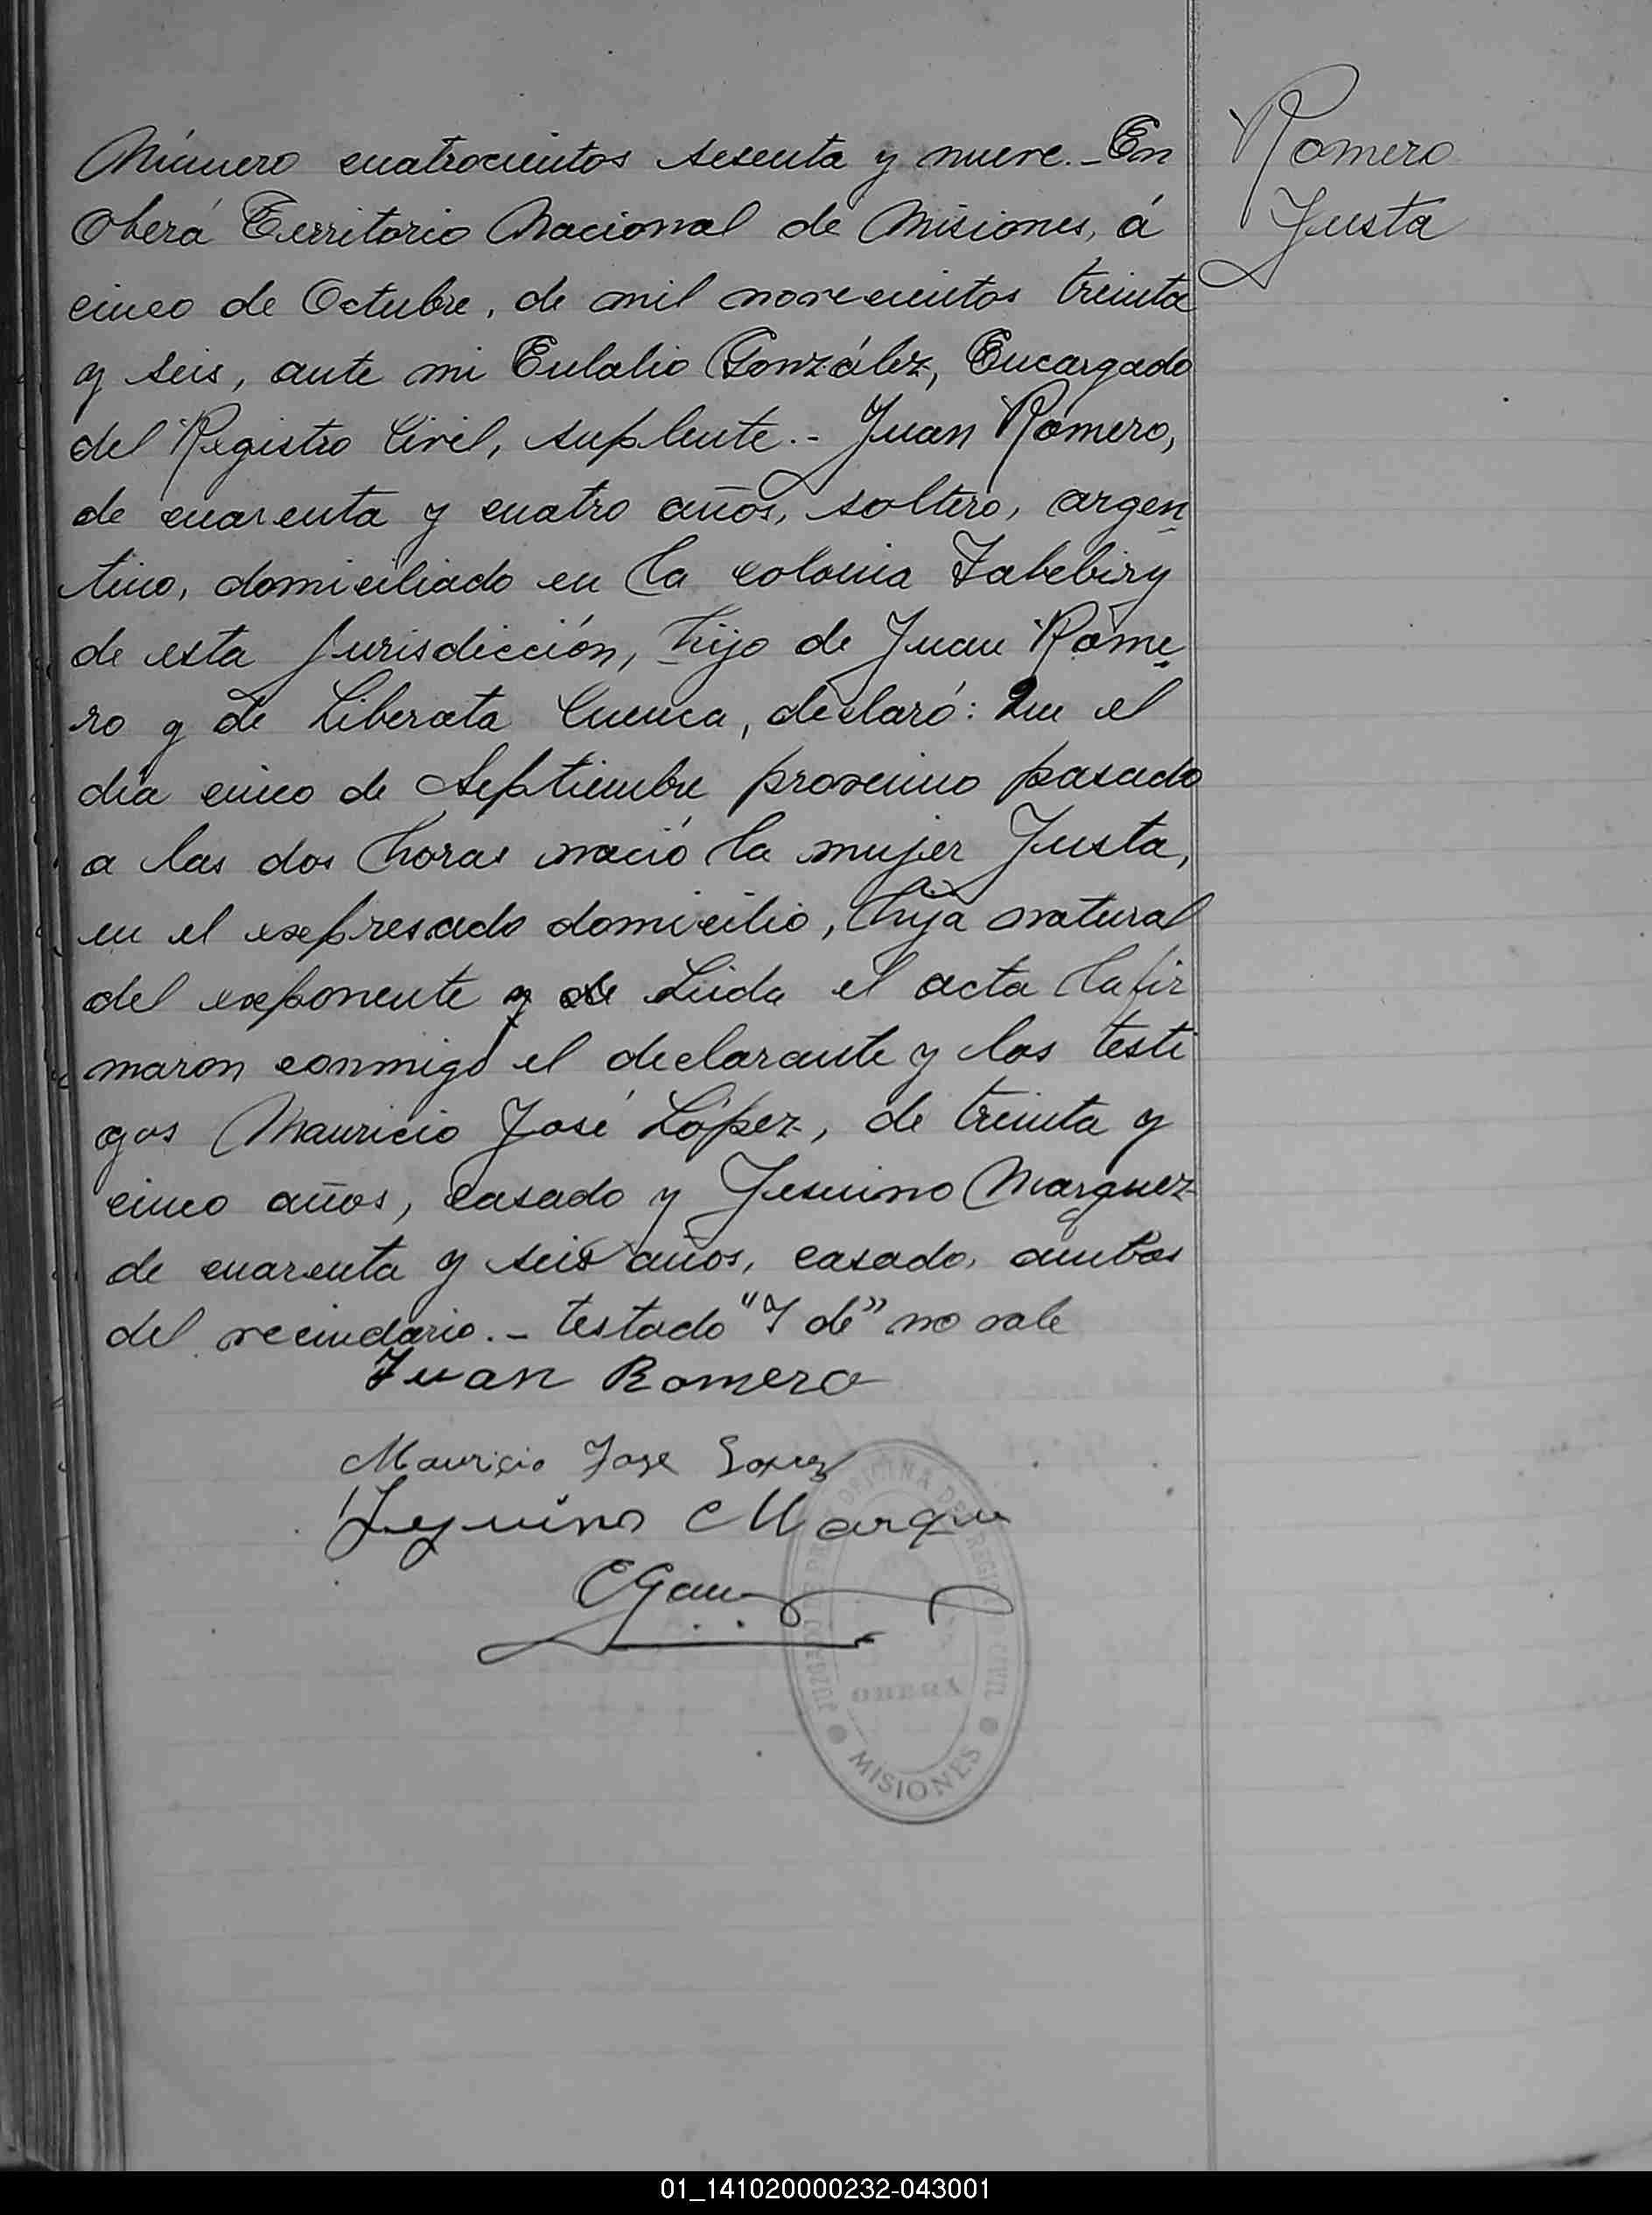 Número cuatrocientos sesenta y nueve.- En
Oberá Territorio Nacional de Misiones, á
cinco de Octubre, de mil novecientos treinta
y seis, ante mi Eulalio González, Encargado
del Registro Civil, suplente.- Juan Romero,
de cuarenta y cuatro años, soltero, argen
tino, domiciliado en la colonia Yabebiry
de esta Jurisdicción, hijo de Juan Rome
ro y de Liberata Cuenca, declaró: Que el
día cinco de Septiembre proximo pasado
a las dos horas nació la mujer Justa,
en el expresado domicilio, hija natural
del exponente y de Leida el acta la fir
maron conmigo el declarante y los testi
gos Mauricio José López, de treinta y
cinco años, casado y Jesuino Marquez
de cuarenta y seis años, casado, ambos
del vecindario.- testado "Y de" no vale
Juan Romero
Mauricio Jose Lopez
Jesuino Marque
EGon
Romero
Justa
OFICINA DEL REGISTRO CIVIL
JUZGADO DE PAZ
OBERA
MISIONES
01_141020000232-043001